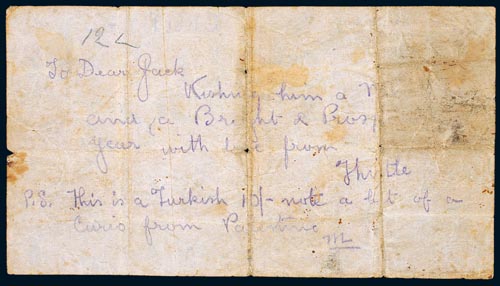 12
To Dear Jack
Wishing him a
and a Bright & Prosp
Year with love from
P.S. This is a Turkish 10/- note a bit of a
Curio from Palestine